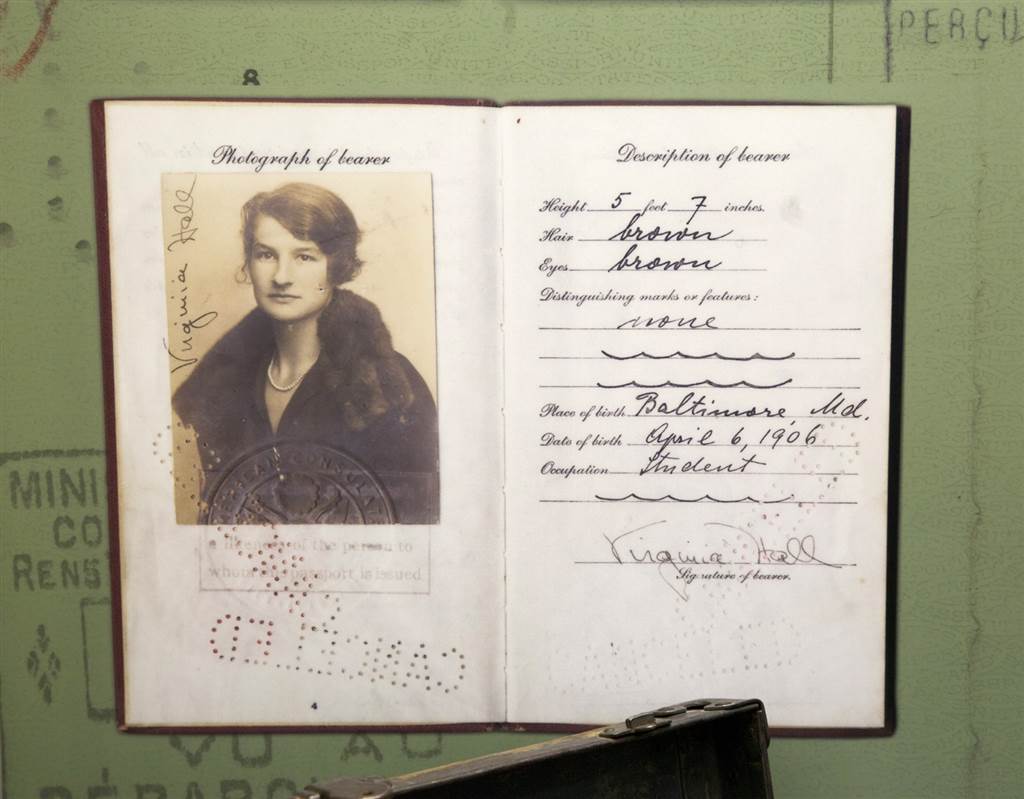 PERÇU
8
Photograph of bearer
Virginia Hall
AMERICAN CONSULATE
a likeness of the person to
whom this passport is issued
CANCELLED
4
Description of bearer
Height 5 feet 7 inches.
Hair brown
Eyes brown
Distinguishing marks or features:
none
Place of birth Baltimore, Md.
Date of birth April 6, 1906
Occupation Student
Virginia Hall
Signature of bearer.
CANCELLED
MINI
CO
RENS
VU AU